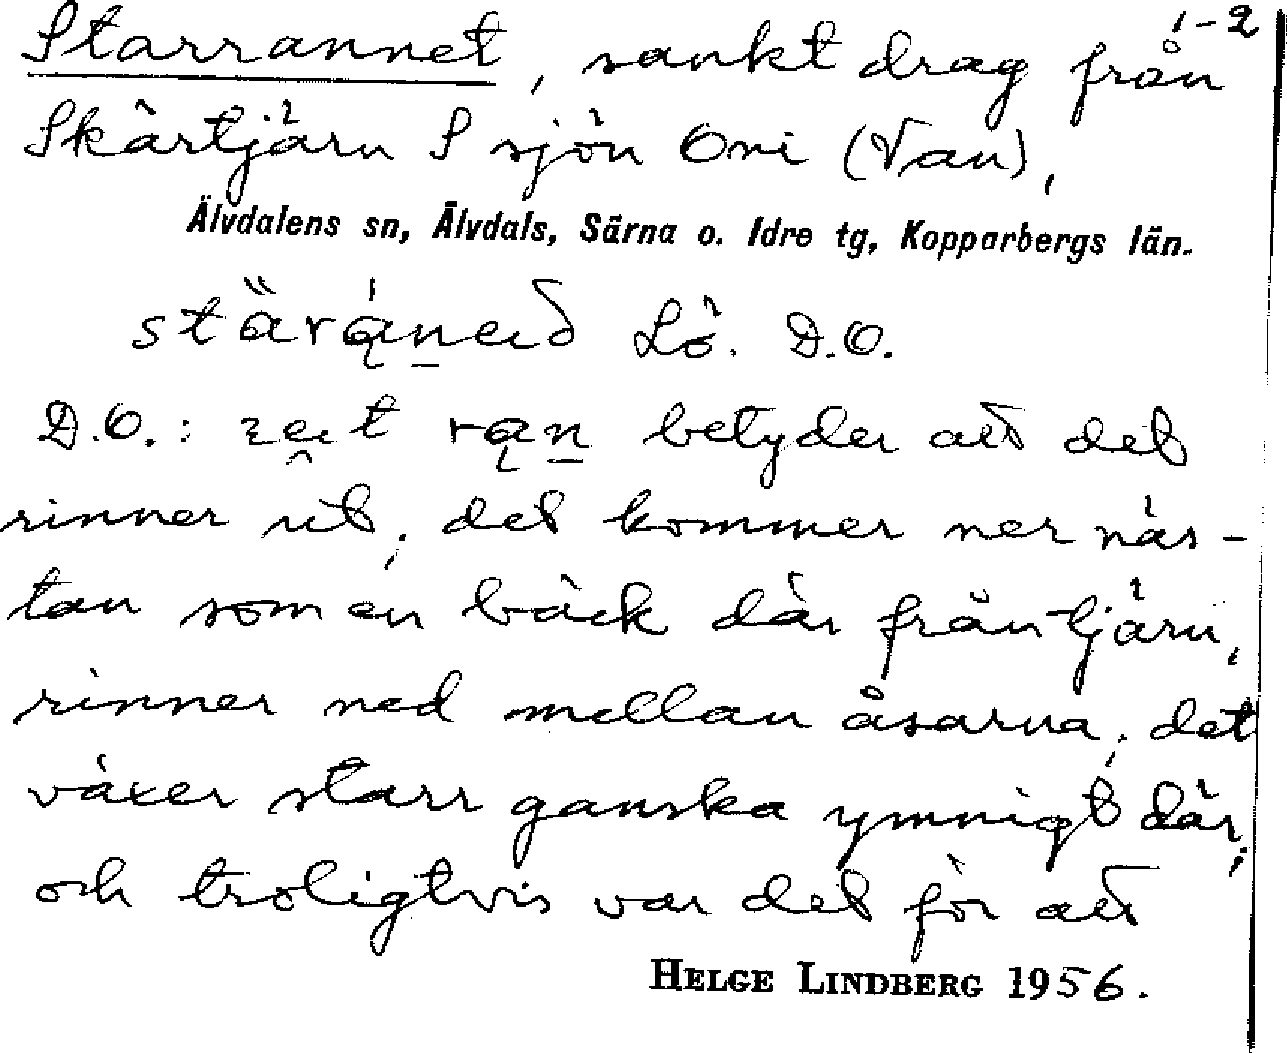 1-2
Starrannet, sankt drag från
Skärtjärn S sjön Oni (Van),
Älvdalens sn, Älvdals, Särna o. Idre tg, Kopparbergs län.
Lö. D.O.
D.O.: betyder att det
rinner ut; det kommer ner näs-
tan som en bäck där från tjärn,
rinner ned mellan åsarna; det
växer starr ganska ymnigt där;
och troligtvis var det för att
HELGE LINDBERG 1956.